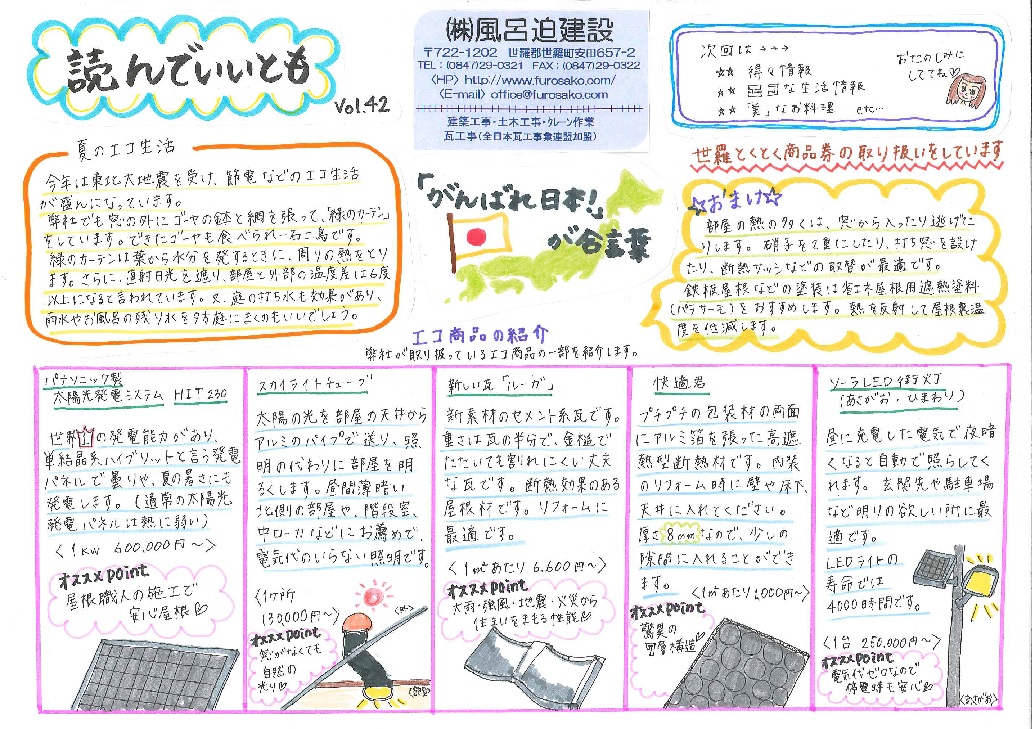 読んでいいとも
Vol.42
㈱風呂迫建設
〒722-1202 世羅郡世羅町安田657-2
TEL：(0847)29-0321 FAX：(0847)29-0322
〈HP〉http://www.furosako.com/
〈E-mail〉office@furosako.com
建築工事・土木工事・クレーン作業
瓦工事(全日本瓦工事業連盟加盟)
次回は→→→
☆☆ 得々情報
☆☆ な生活情報
☆☆ 「美」なお料理 etc…
おたのしみに
しててね♡
世羅とくとく商品券の取り扱いをしています
夏のエコ生活
今年は東北大地震を受け、節電などのエコ生活
が盛んになっています。
弊社でも窓の外にゴーヤの鉢と網を張って、「緑のカーテン」
をしています。できたゴーヤも食べられ一石二鳥です。
緑のカーテンは葉から水分を発するときに、周りの熱をとり
ます。さらに、直射日光を遮り、部屋と外部の温度差は6度
以上になると言われています。又、庭の打ち水も効果があり、
雨水やお風呂の残り水を夕方庭にまくのもいいでしょう。
「がんばれ日本!」
が合言葉
☆おまけ☆
部屋の熱の多くは、窓から入ったり逃げた
りします。硝子を2重にしたり、内窓を設け
たり、断熱サッシなどの取替が最適です。
鉄板屋根などの塗装は省エネ屋根用遮熱塗料
(パラサーモ)をおすすめします。熱を反射して屋根裏温
度を低減します。
エコ商品の紹介
弊社が取り扱っているエコ商品の一部を紹介します。
パナソニック製
太陽光発電システム HIT230
世界1の発電能力があり、
単結晶系ハイブリットと言う発電
パネルで曇りや、夏の暑さにも
発電します。(通常の太陽光
発電パネルは熱に弱い)
〈1kw 600,000円〜〉
オススメpoint
屋根職人の施工で
安心屋根♡
スカイライトチューブ
太陽の光を部屋の天井から
アルミのパイプで送り、照
明の代わりに部屋を明
るくします。昼間薄暗い
北側の部屋や、階段室、
中ローカなどにお薦めで、
電気代のいらない照明です。
〈1ヶ所
130,000円〜〉
オススメpoint
窓がなくても
自然の
光り♡
新しい瓦「ルーガ」
新素材のセメント系瓦です。
重さは瓦の半分で、金槌で
たたいても割れにくい丈夫
な瓦です。断熱効果のある
屋根材です。リフォームに
最適です。
〈1㎡あたり 6,600円〜〉
オススメpoint
大雨・強風・地震・火災から
住まいをまもる性能♡
快適君
プチプチの包装材の両面
にアルミ箔を張った高遮
熱型断熱材です。内装
のリフォーム時に壁や床下、
天井に入れてください。
厚さ8mmなので、少しの
隙間に入れることができ
ます。
〈1㎡あたり1,000円〜〉
オススメpoint
驚異の
四層構造♡
ソーラLED街灯
(あさがお・ひまわり)
昼に充電した電気で夜暗
くなると自動で照らしてく
れます。玄関先や駐車場
など明りの欲しい所に最
適です。
LEDライトの
寿命では
4000時間です。
〈1台 250,000円〜〉
オススメpoint
電気代ゼロなので
停電時も安心♡
〈あさがお〉